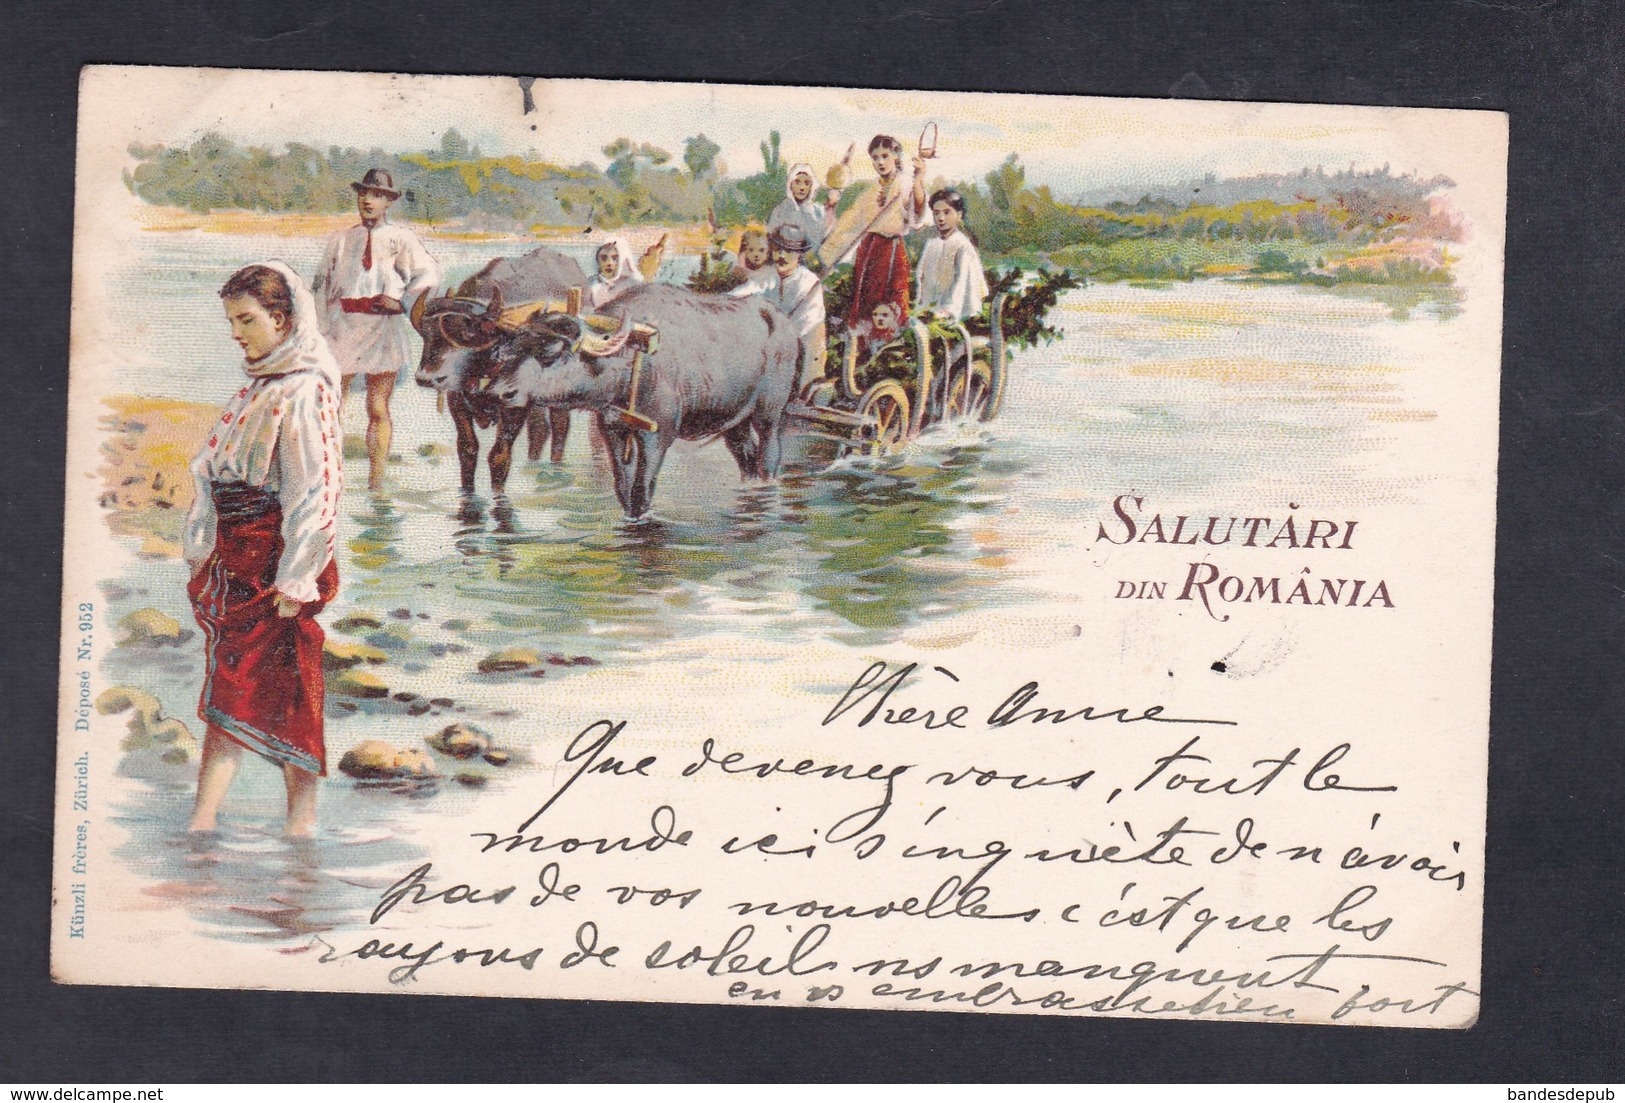 SALUTĂRI
DIN ROMÂNIA
Chère Annie
Que devenez vous, tout le
monde ici s'inquiète de n'avoir
pas de vos nouvelles c'est que les
rayons de soleil ns manquent.
en vs embrassant bien fort
Künzli frères, Zürich. Déposé Nr. 952
© www.delcampe.net
bandesdepub